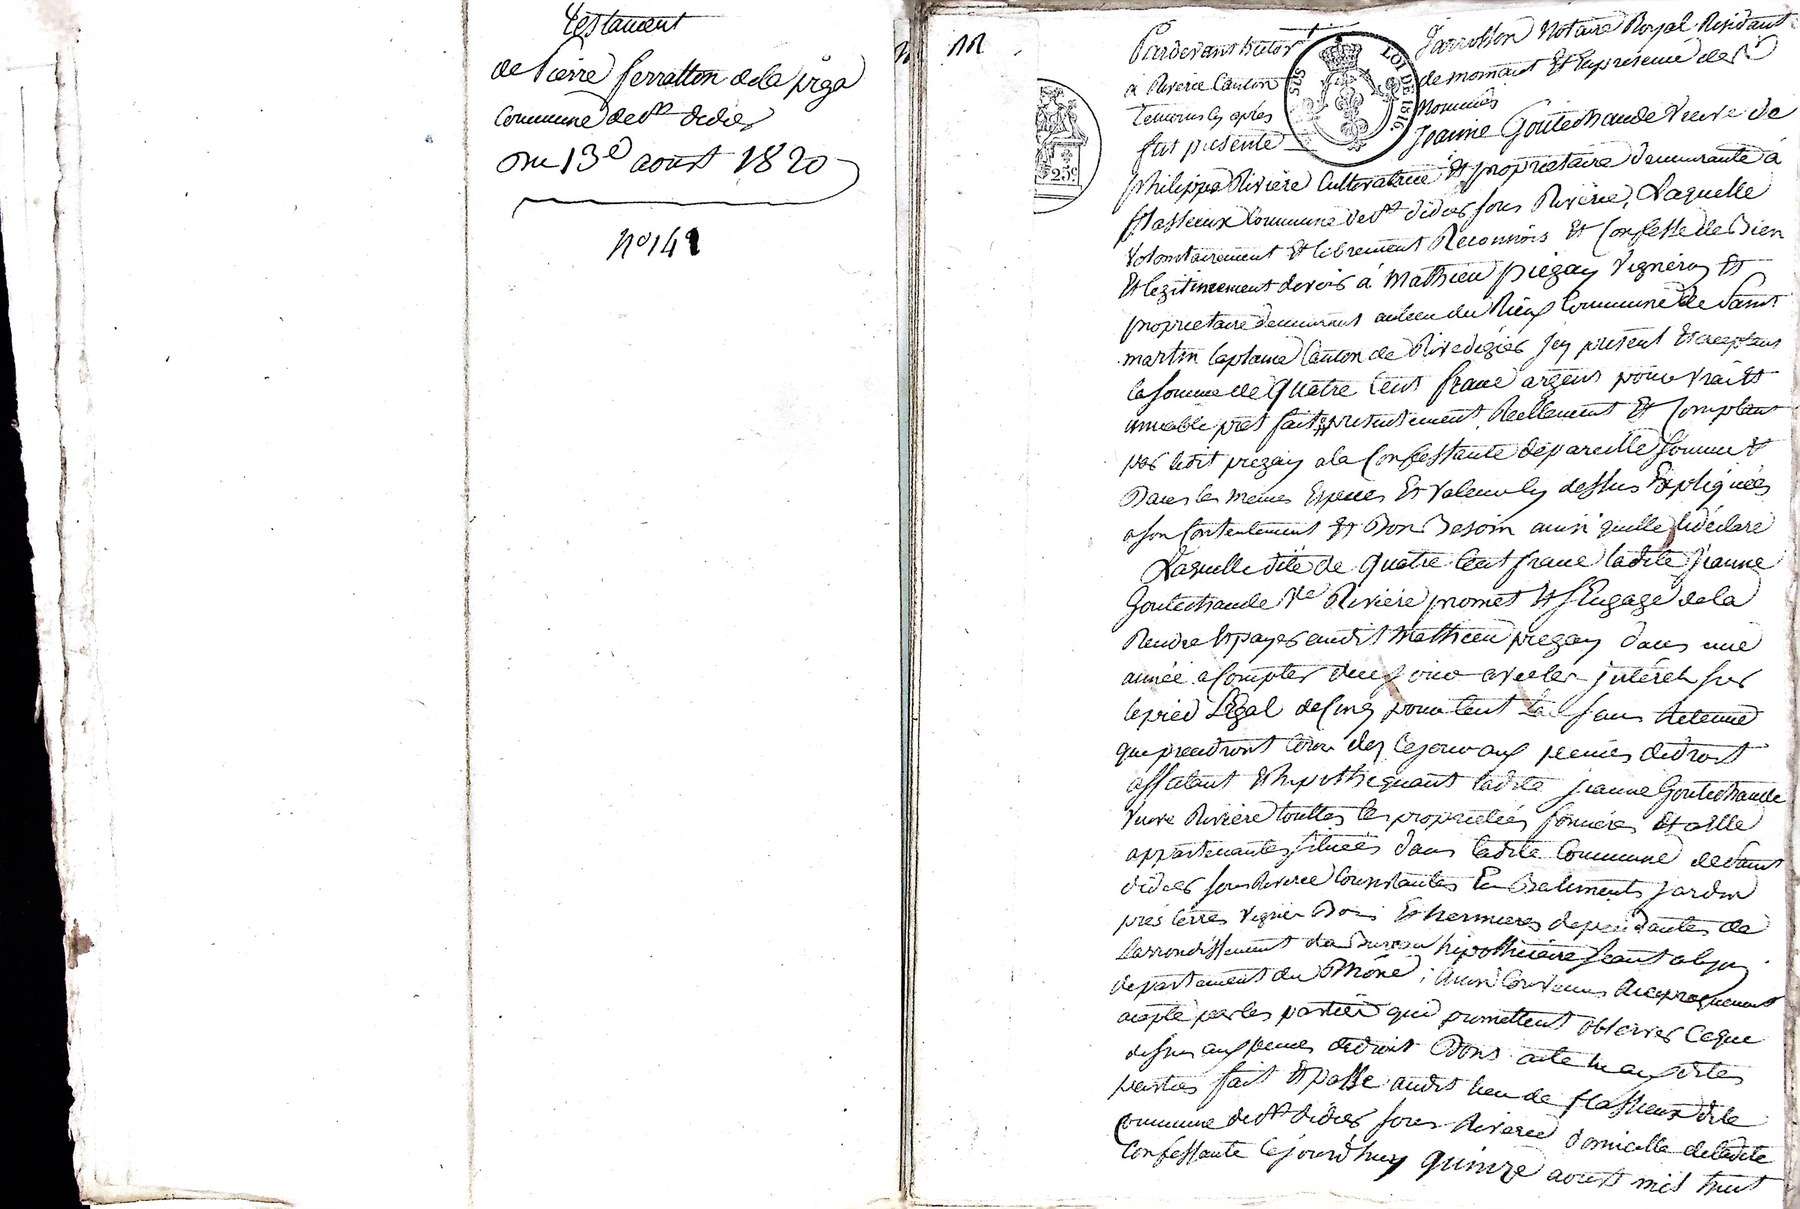 Testament
de Pierre ferratton de la priga
Commune de St didier
Du 13e aoust 1820
No 141
Pardevant victor Jarrosson Notaire Royal Résidant
à Riverie Canton de mornant Et En présence des
Temoins cy après Nommés
fut présente Jeanne Goutechaude Veuve de
philippe Rivière Cultivatrice Et propriétaire demeurante à
flassieux Commune de St didier sous Riverie, Laquelle
Volontairement Et librement Reconnois Et Confesse de Bien
Et legitimement devoir à Mathieu piegay Vigneron Et
proprietaire demeurant au lieu du Rieux Commune de Saint
martin laplaine Canton de Rivedegier Icy présent Et acceptant
la somme de quatre Cent franc argent pour vrai Et
amiable prêt fait présentement Réellement Et Comptant
par ledit piegay a la Confessante de pareille somme Et
Dans les mêmes Espèces Et valeur cy dessus Expliquées
a son Contentement Et Bon Besoin ainsi qu'elle l'a déclaré
Laquelle dite de quatre Cent franc ladite Jeanne
Goutechaude Ve Rivière promet Et s'Engage de la
Rendre Et payer audit Mathieu piegay dans une
année a Compter de ce jour avec les intérêt sur
le pied Légal de Cinq pour Cent sans Retenue
que prendront Cour dez ce jour aux peines de droit
affectant Et hipothequant ladite Jeanne Goutechaude
Veuve Rivière touttes les propriétées foncières Et a Elle
appartenantes situées dans ladite Commune de Saint
didier sous Riverie Consistantes En Batiments Jardin
prés terres Vignes Bois Et hermieres dépendantes de
L'arrondissement du Bureau hipothécaire séant a lyon
département du Rhône; Ainsi Convenu Reciproquement
accepté par les parties qui promettent observer Ce que
dessus aux peines de droit Dont acte auxdites
parties fait Et passé audit lieu de flassieux dite
Commune de St didier sous Riverie domicille de ladite
Confessante Cejourd'huy quinze aoust mil huit
LOI DE 1816.
25c